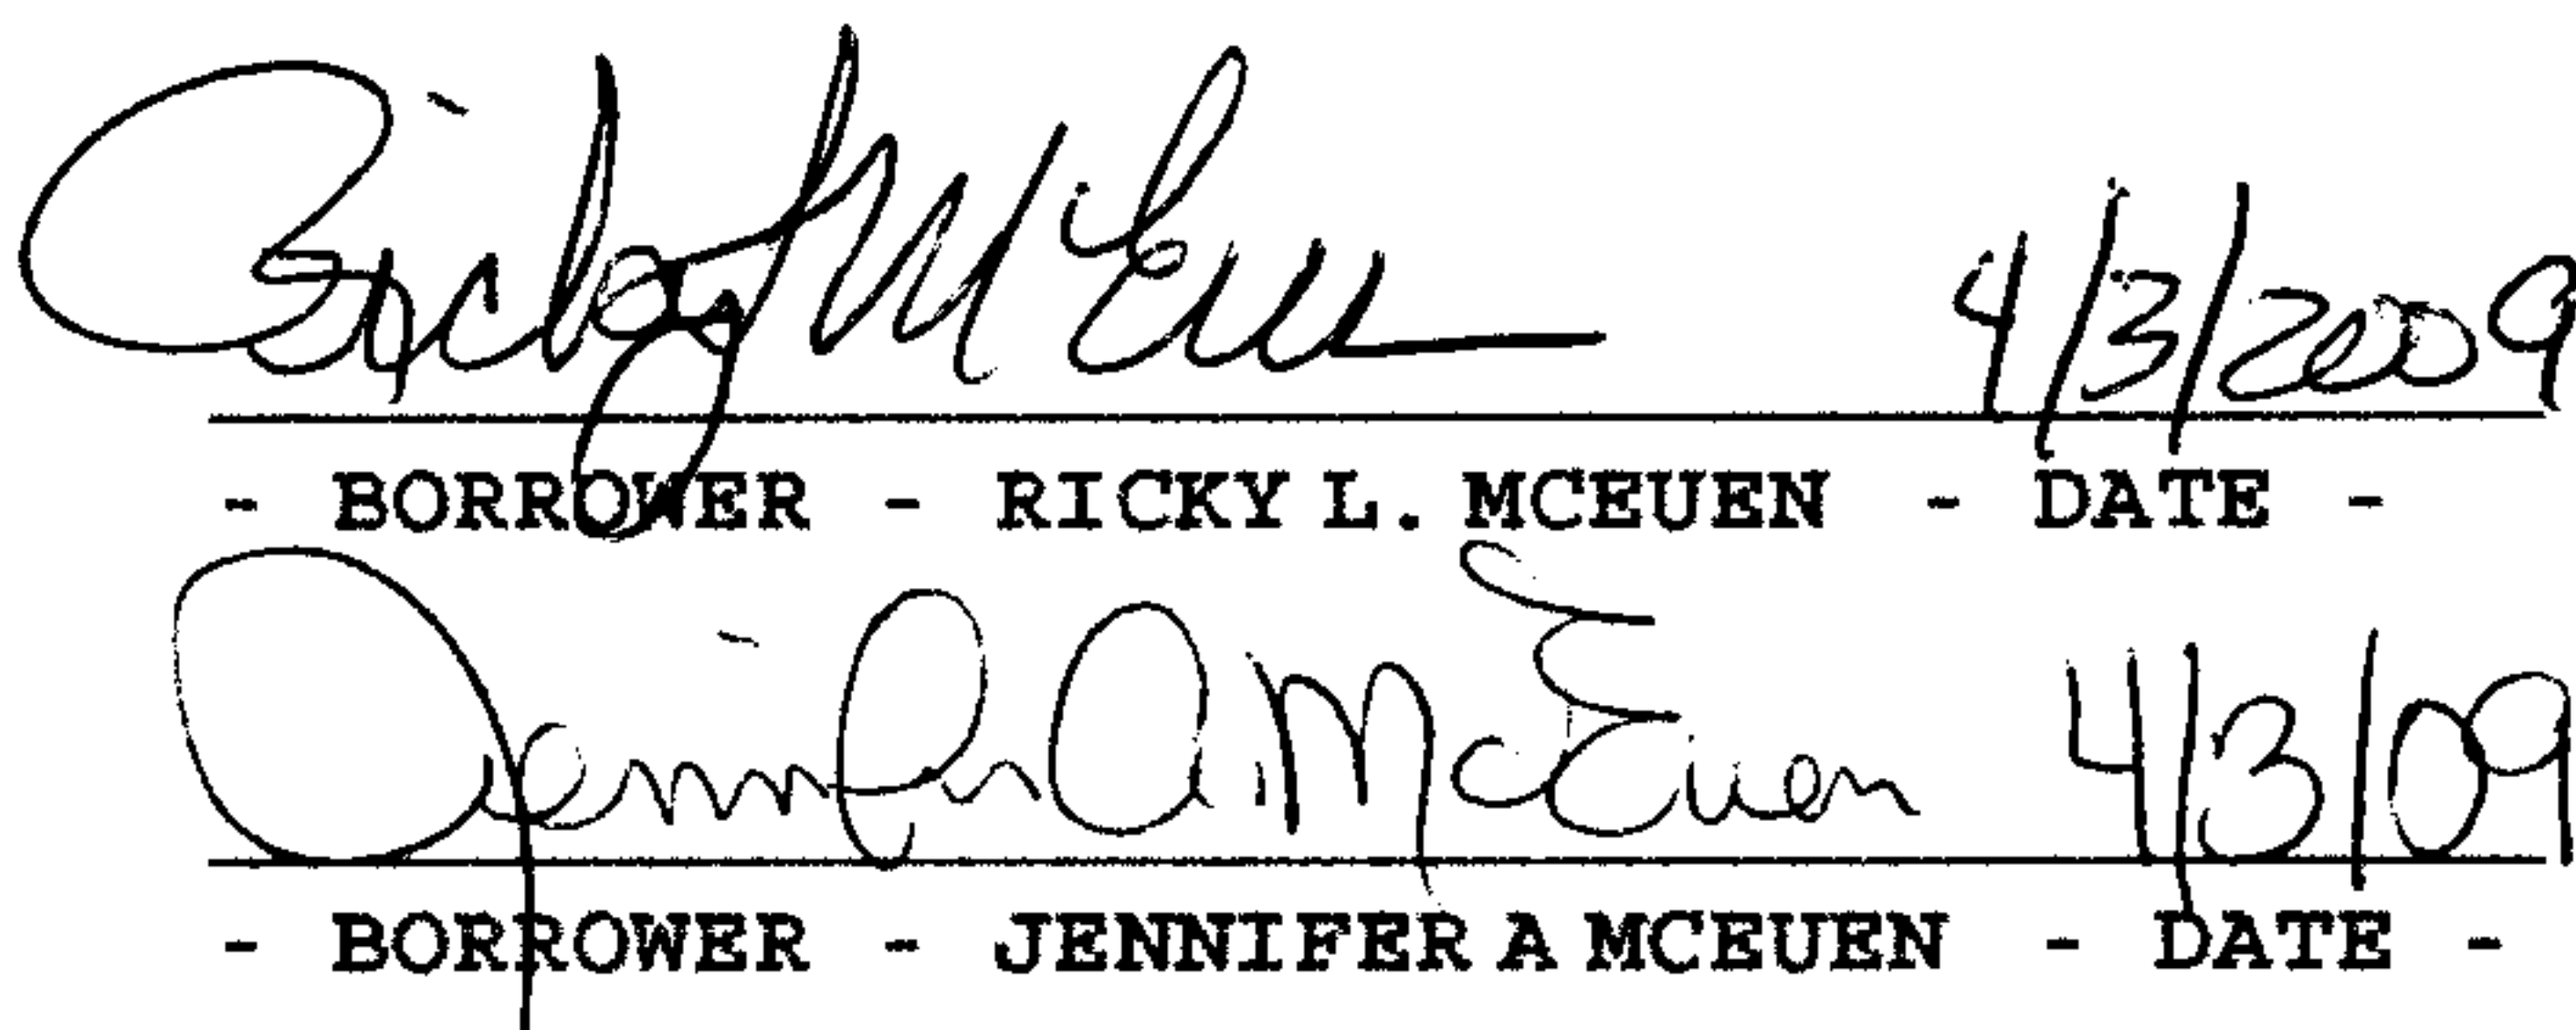 Ricky L McEuen 4/3/2009
- BORROWER - RICKY L. MCEUEN - DATE -
Jennifer A. McEuen 4/3/09
- BORROWER - JENNIFER A MCEUEN - DATE -